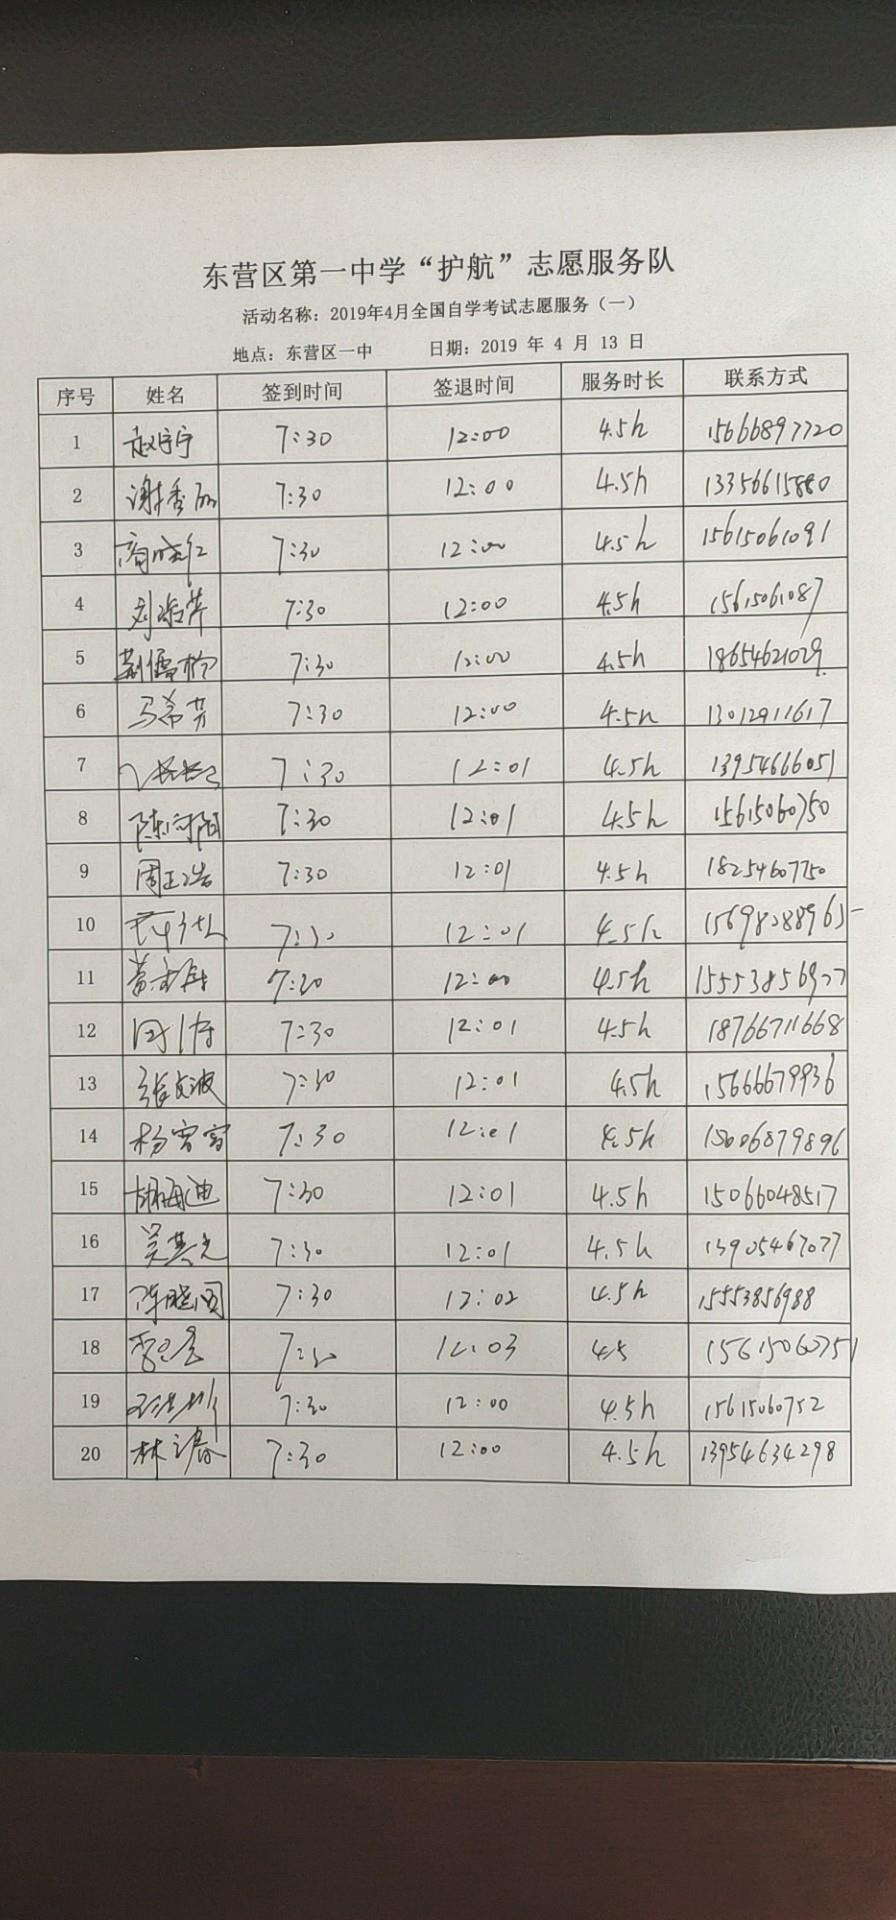 东营区第一中学“护航”志愿服务队
活动名称：2019年4月全国自学考试志愿服务（一）
地点：东营区一中 日期：2019 年 4 月 13 日
序号 姓名 签到时间 签退时间 服务时长 联系方式
1 赵宇宁 7:30 12:00 4.5h 15666897720
2 谢秀丽 7:30 12:00 4.5h 13356615880
3 商晓红 7:30 12:00 4.5h 15615061091
4 7:30 12:00 4.5h 15615061087
5 7:30 12:00 4.5h 18654621029
6 马希芳 7:30 12:00 4.5h 13012911617
7 7:30 12:01 4.5h 13954666051
8 陈向阳 7:30 12:01 4.5h 15615060750
9 周正浩 7:30 12:01 4.5h 18254607750
10 7:30 12:01 4.5h
11 7:30 12:00 4.5h
12 7:30 12:01 4.5h 18766711668
13 张文波 7:30 12:01 4.5h 15666679936
14 杨雪雪 7:30 12:01 4.5h 15006879896
15 胡海迪 7:30 12:01 4.5h 15066048517
16 吴其光 7:30 12:01 4.5h 13905467077
17 陈晓园 7:30 12:02 4.5h 15553856988
18 7:30 12:03 4.5 15615060751
19 7:30 12:00 4.5h 15615060752
20 林春 7:30 12:00 4.5h 13954634298